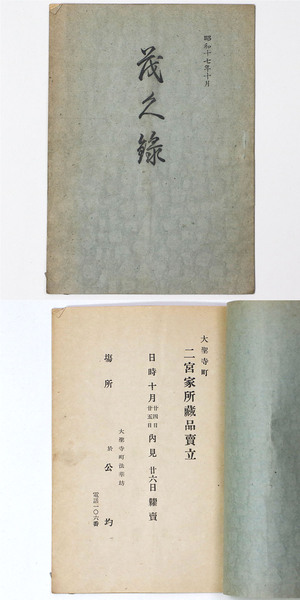 昭和十七年十月
茂久錄
大聖寺町
二宮家所藏品賣立
日時十月
廿四日
廿五日
內見
廿六日
糶賣
場所
大聖寺町法華坊
於
公均
電話一〇六番